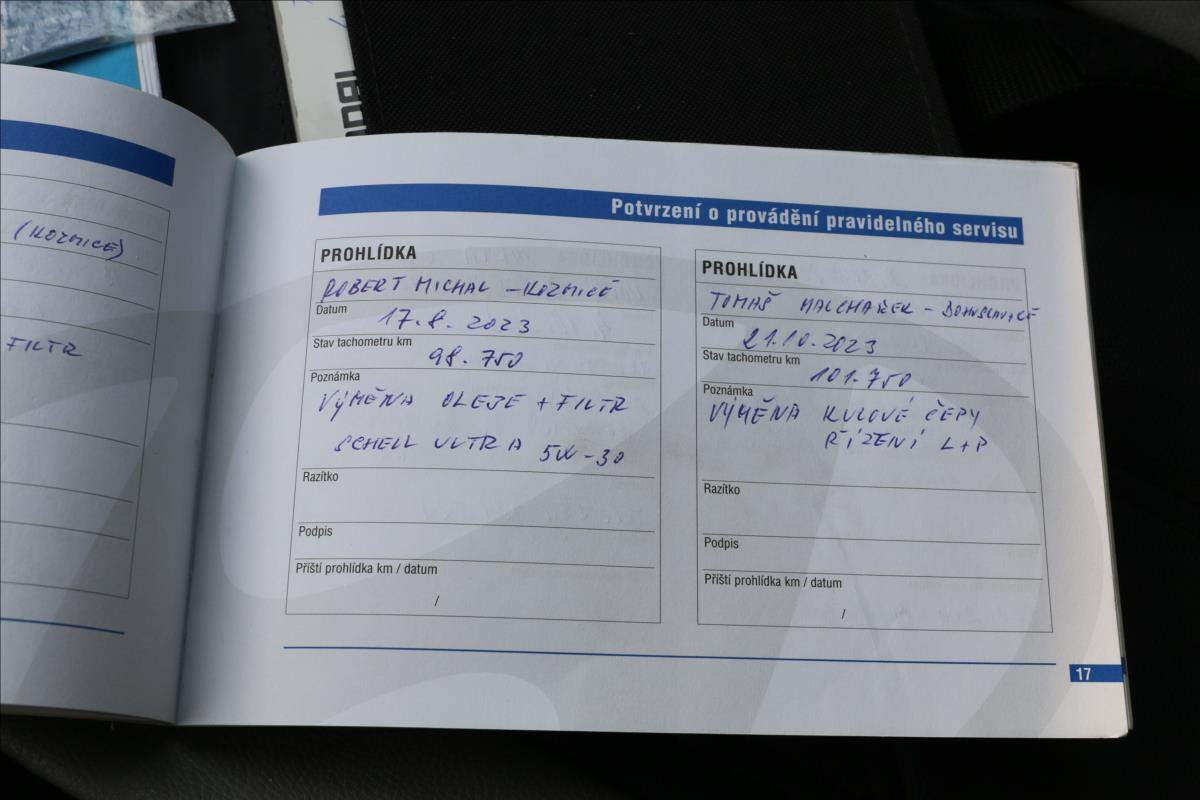 (KOZMICE)
FILTR
Potvrzení o provádění pravidelného servisu
PROHLÍDKA
ROBERT MICHAL – KOZMICE
Datum
17.8.2023
Stav tachometru km
98.750
Poznámka
VÝMĚNA OLEJE + FILTR
SCHELL ULTRA 5W-30
Razítko
Podpis
Příští prohlídka km / datum
/
PROHLÍDKA
TOMÁŠ HALCHAŘEK – BOHUSLAVICE
Datum
21.10.2023
Stav tachometru km
101.750
Poznámka
VÝMĚNA KULOVÉ ČEPY
ŘÍZENÍ L+P
Razítko
Podpis
Příští prohlídka km / datum
/
17